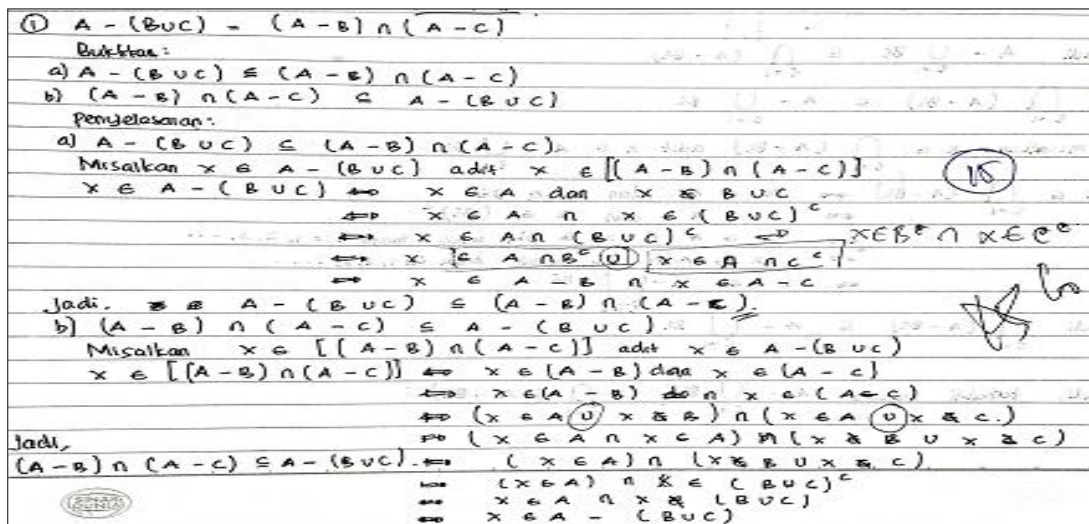 ① A - (B∪C) = (A - B) ∩ (A - C)
Buktikan:
a) A - (B ∪ C) ⊆ (A - B) ∩ (A - C)
b) (A - B) ∩ (A - C) ⊆ A - (B ∪ C)
Penyelesaian:
a) A - (B ∪ C) ⊆ (A - B) ∩ (A - C)
Misalkan x ∈ A - (B ∪ C) adit x ∈ [(A - B) ∩ (A - C)]
x ∈ A - (B ∪ C) ⇔ x ∈ A dan x ∉ B ∪ C
⇔ x ∈ A ∩ x ∈ (B ∪ C)ᶜ
⇔ x ∈ A ∩ (B ∪ C)ᶜ ⇔ x∈Bᶜ ∩ x∈Cᶜ
⇔ x ∈ A ∩ Bᶜ ∪ x ∈ A ∩ Cᶜ
⇔ x ∈ A - B ∩ x ∈ A - C
Jadi, A - (B ∪ C) ⊆ (A - B) ∩ (A - C).
b) (A - B) ∩ (A - C) ⊆ A - (B ∪ C)
Misalkan x ∈ [(A - B) ∩ (A - C)] adit x ∈ A - (B ∪ C)
x ∈ [(A - B) ∩ (A - C)] ⇔ x ∈ (A - B) dan x ∈ (A - C)
⇔ x ∈ (A - B) ∩ x ∈ (A - C)
⇔ (x ∈ A ∪ x ∉ B) ∩ (x ∈ A ∪ x ∉ C)
Jadi, ⇔ (x ∈ A ∩ x ∈ A) ∩ (x ∉ B ∪ x ∉ C)
(A - B) ∩ (A - C) ⊆ A - (B ∪ C). ⇔ (x ∈ A) ∩ (x ∉ B ∪ x ∉ C)
⇔ (x ∈ A) ∩ x ∈ (B ∪ C)ᶜ
⇔ x ∈ A ∩ x ∉ (B ∪ C)
⇔ x ∈ A - (B ∪ C)
SINAR DUNIA